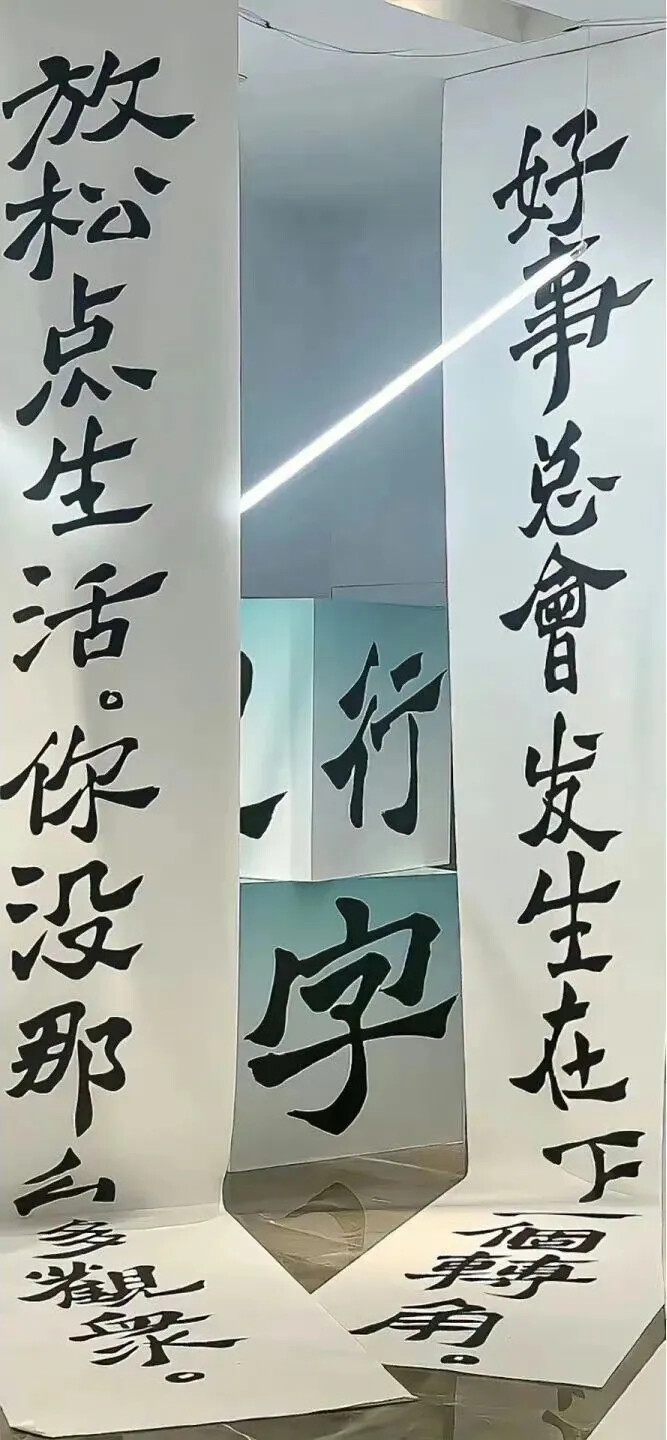 好事总會发生在下一個轉角。
放松点生活。你没那么多觀眾。
行
字